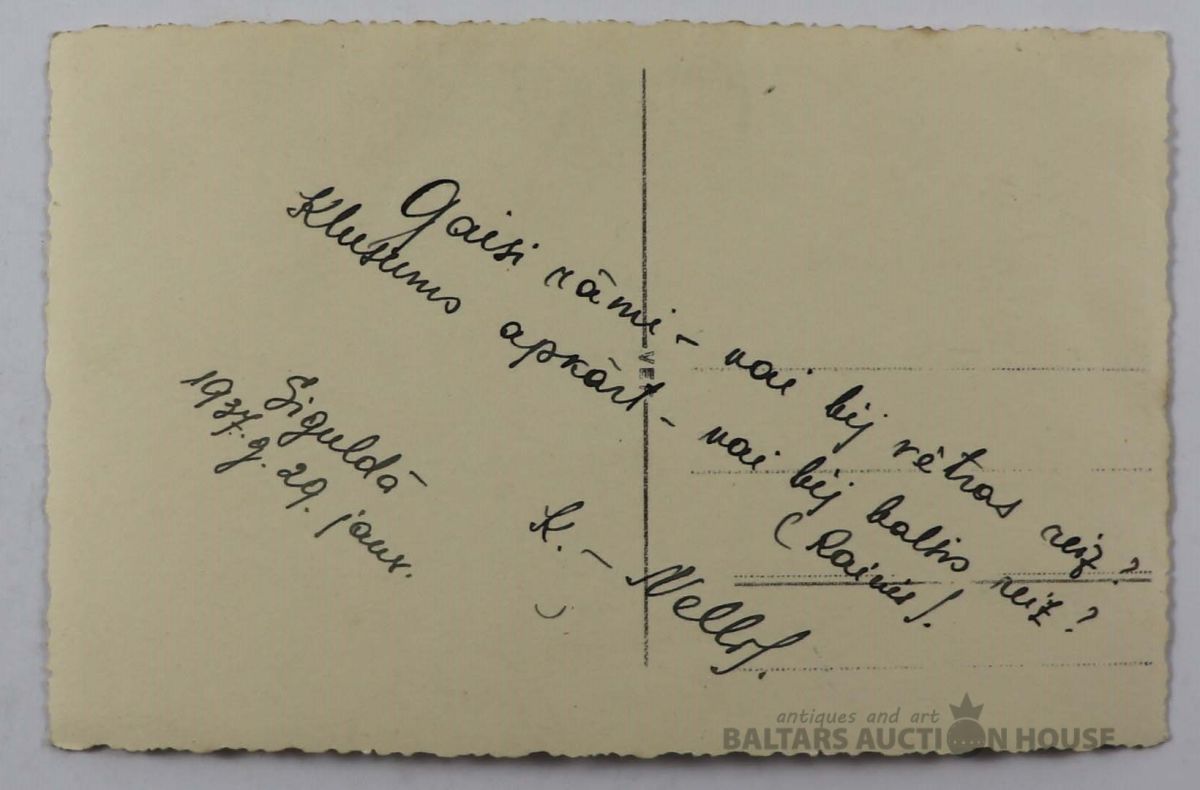 Gaisi rāmi – vai bij vētras reiz?
Klusums apkārt – vai bij baltis reiz?
(Rainis).
K. – Nellij.
Siguldā
1937. g. 29. janv.
VEF
antiques and art
BALTARS AUCTION HOUSE